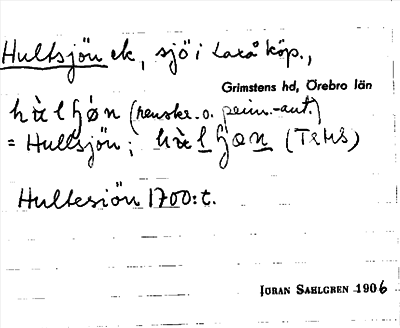 Hultsjön ek, sjö i Laxå köp.,
Grimstens hd, Örebro län
hàlʃøn (renskr. o. prim.-aut.)
= Hultsjön; hàlʃøn (TRMS)
Hultesiön 1700:t.
JÖRAN SAHLGREN 1906